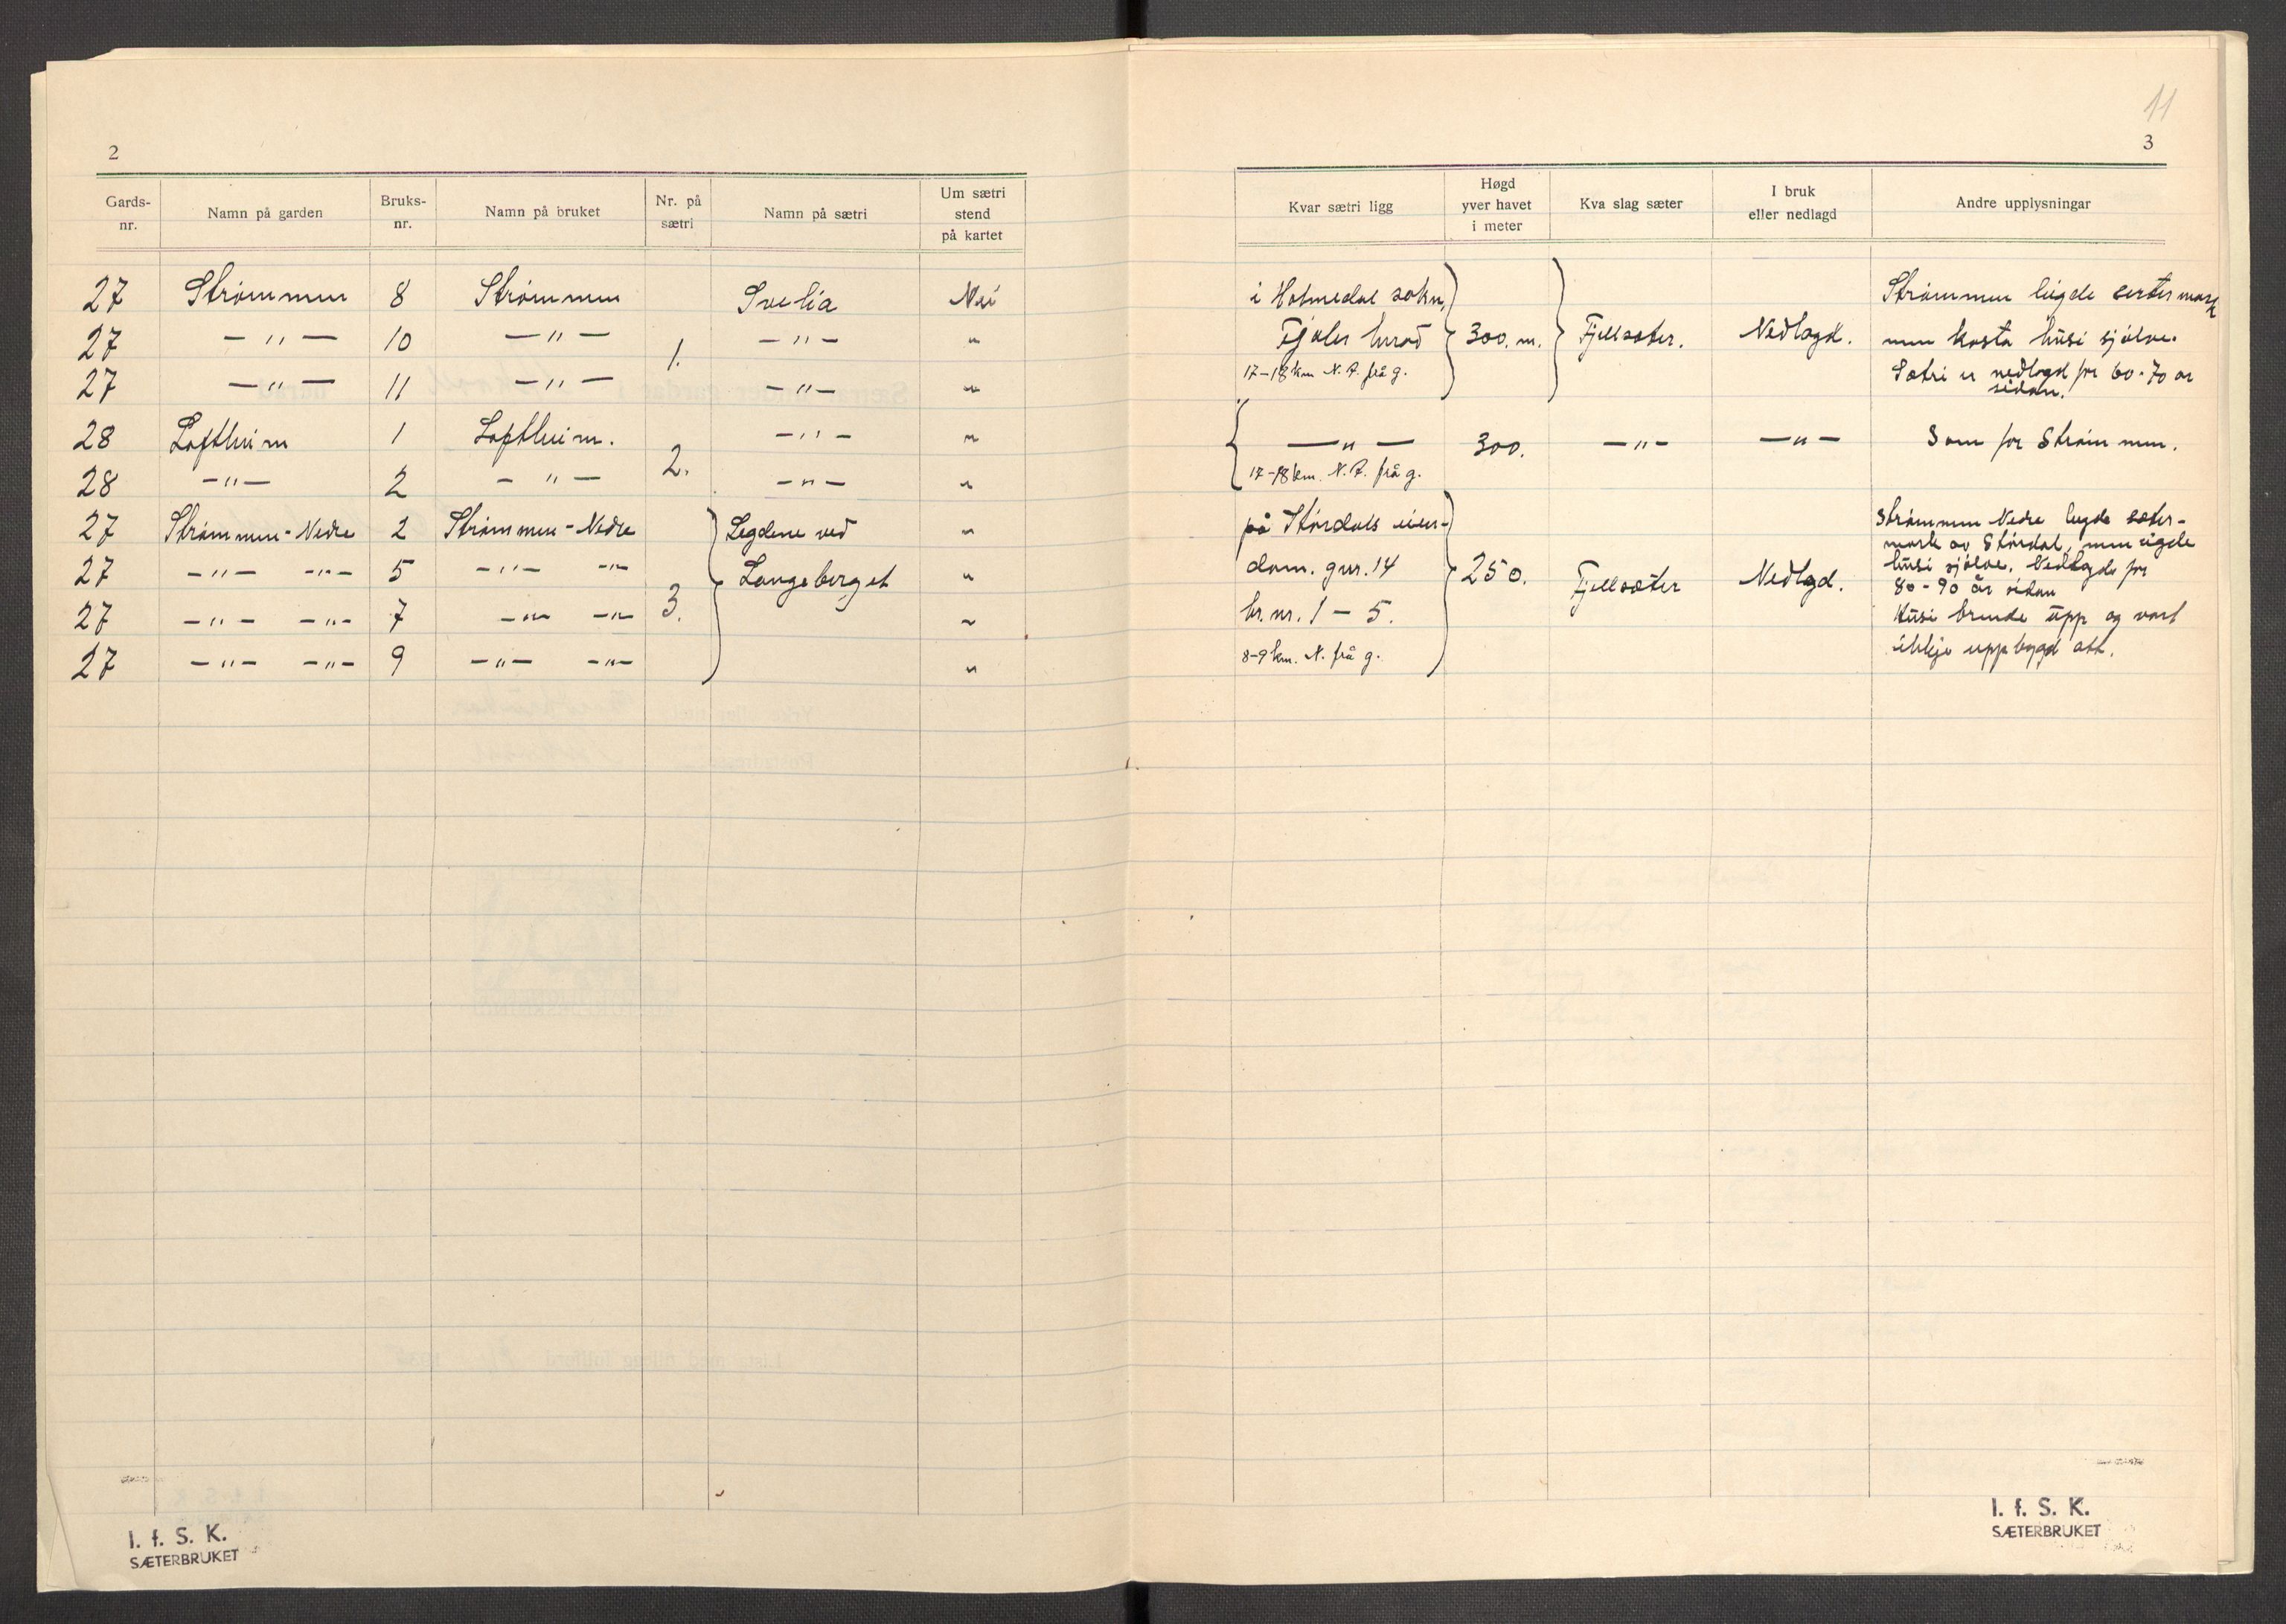 2
Gards-nr. Namn på garden Bruks-nr. Namn på bruket Nr. på sætri Namn på sætri Um sætri stend på kartet
27 Strømmen 8 Strømmen Svelia Nei
27 — " — 10 — " — 1. — " — "
27 — " — 11 — " — — " — "
28 Loftheim 1 Loftheim. — " — "
28 — " — 2 — " — 2. — " — "
27 Strømmen - Nedre 2 Strømmen - Nedre Legdene ved "
27 — " — — " — 5 — " — — " — Langeberget "
27 — " — — " — 7 — " — — " — 3. "
27 — " — — " — 9 — " — — " — "
I. f. S. K.
SÆTERBRUKET
11
3
Kvar sætri ligg Høgd yver havet i meter Kva slag sæter I bruk eller nedlagd Andre upplysningar
i Holmedal sokn, Strømmen leigde sætermark
Fjaler herad 300. m. Fjellsæter. Nedlagd. men kosta husi sjølve.
17-18 km N. A. frå g. Sætri er nedlagd for 60-70 år
sidan.
— " — 300. — " — — " — Som for Strømmen.
17-18 km. N. A. frå g.
på Stórdals eien- Strømmen Nedre leigde sæter-
mark av Stórdal, men eigde
dom. gnr. 14 250. Fjellsæter Nedlagd. husi sjølve. Nedlagde for
80-90 år sidan
br. nr. 1 - 5. Husi brende upp og vart
8-9 km. N. frå g. ikkje uppbygd att.
I. f. S. K.
SÆTERBRUKET